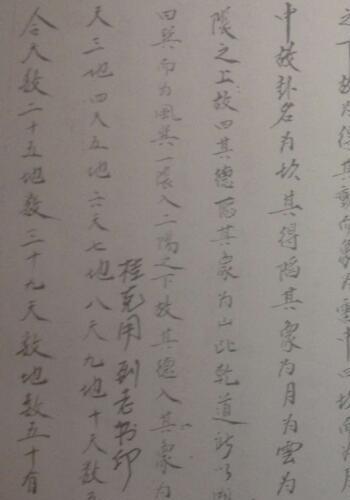 中故卦名為坎其得陷其象為月為雲為
之上故曰其德其象為山此乾道所以
曰巽而為風巽一陰入二陽之下故其德入其象為
桂克用 到老书印
天三地四天五地六天七地八天九地十天数五
合天数二十五地数三十九天数地数五十有